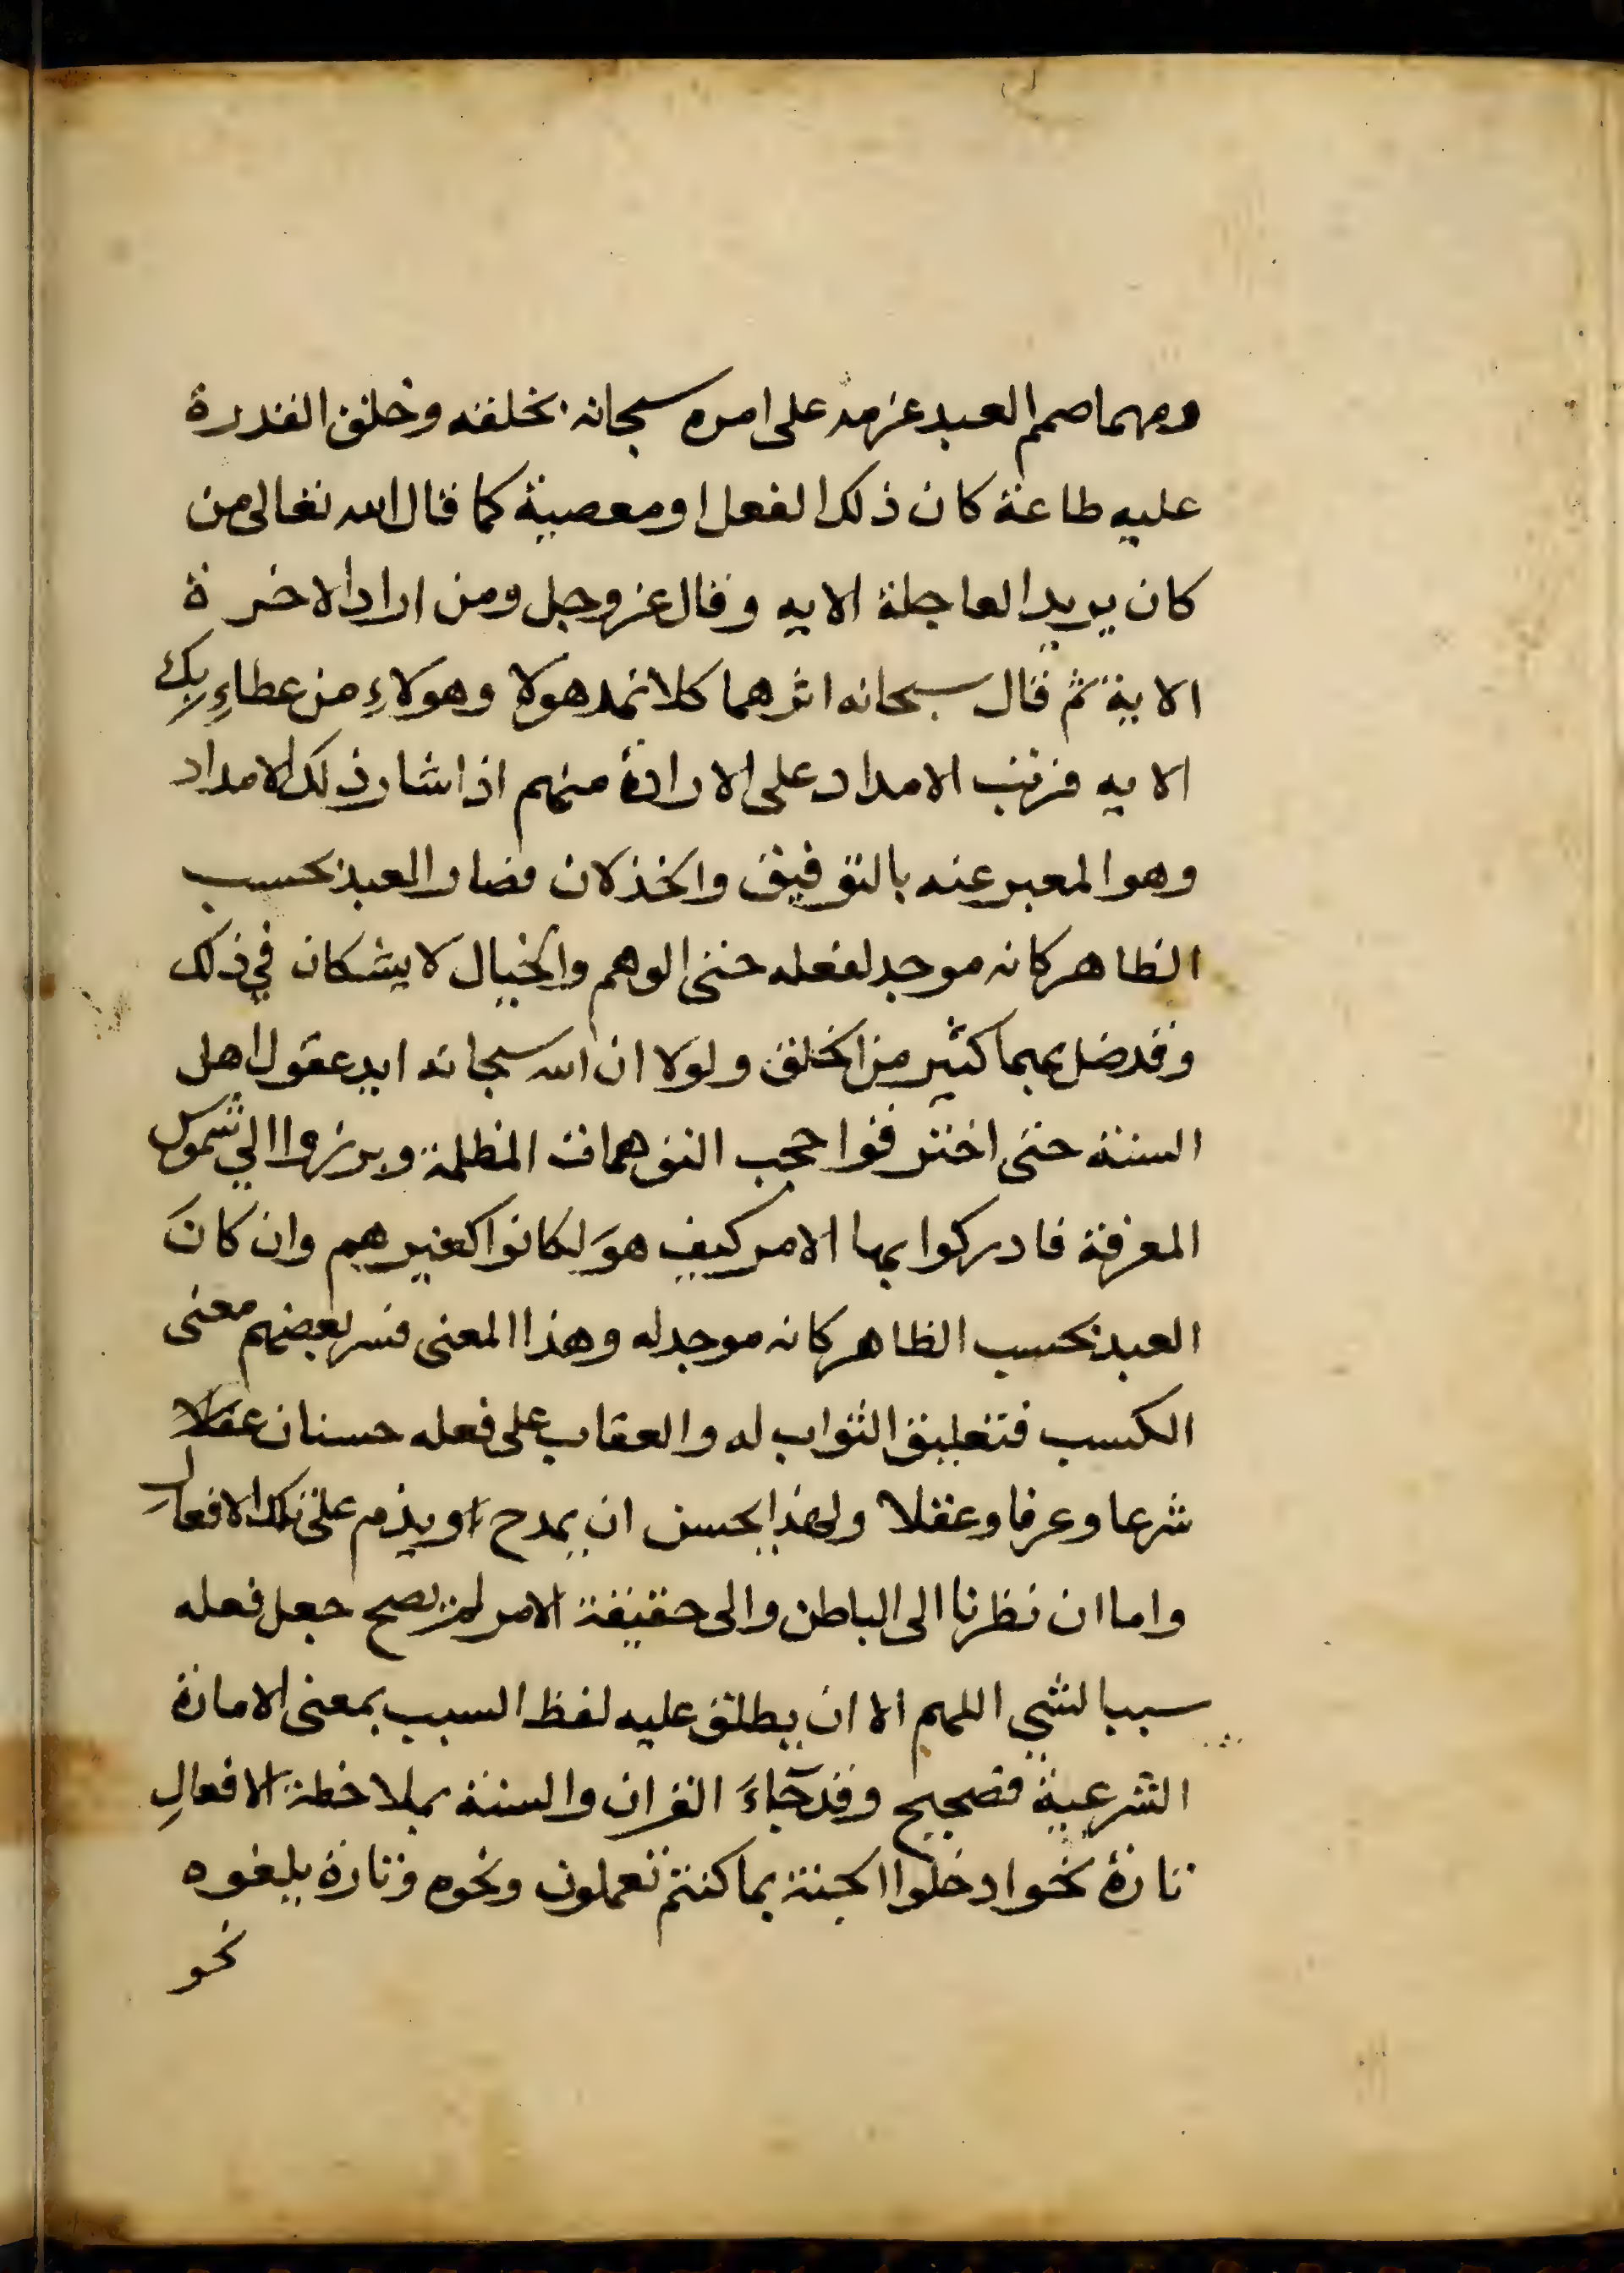 ومهما صمم العبد عزمه على امره سبحانه بخلقه وخلق القدرة
عليه طاعة كان ذلك الفعل او معصية كما قال الله تعالى من
كان يريد العاجلة الايه وقال عز وجل ومن اراد الاخرة
الاية ثم قال سبحانه اثرهما كلا نمد هولا وهولاءِ من عطاءِ ربك
الايه فرتب الامداد على الارادة منهم اذا شا وذلك الامداد
وهو المعبر عنه بالتوفيق والخذلان فصار العبد بحسب
الظاهر كانه موجد لفعله حتى الوهم والخيال لا يشكان في ذلك
وقد ضل بهما كثير من الخلق ولولا ان الله سبحانه ايد عقول اهل
السنة حتى اخترقوا حجب التوهمات المظلمة وبرزوا الي شموس
المعرفة فادركوا بها الامر كيف هوَ لكانوا كغيرهم وان كانَ
العبد بحسب الظاهر كانه موجد له وهذا المعنى فسر بعضهم معنى
الكسب فتعليق الثواب له والعقاب على فعله حسنان عقلا
شرعا وعرفا وعقلا ولهذا يحسن ان يمدح او يذم على تلك الافعال
واما ان نظرنا الى الباطن والى حقيقة الامر لم يصح جعل فعله
سببا لشي اللهم الا ان يطلق عليه لفظ السبب بمعنى الامارة
الشرعية فصحيح وقد جاءَ القران والسنة بملاحظة الافعالِ
تارة نحو ادخلوا الجنة بما كنتم تعملون ونحوه وتارة بلغوه
نحو